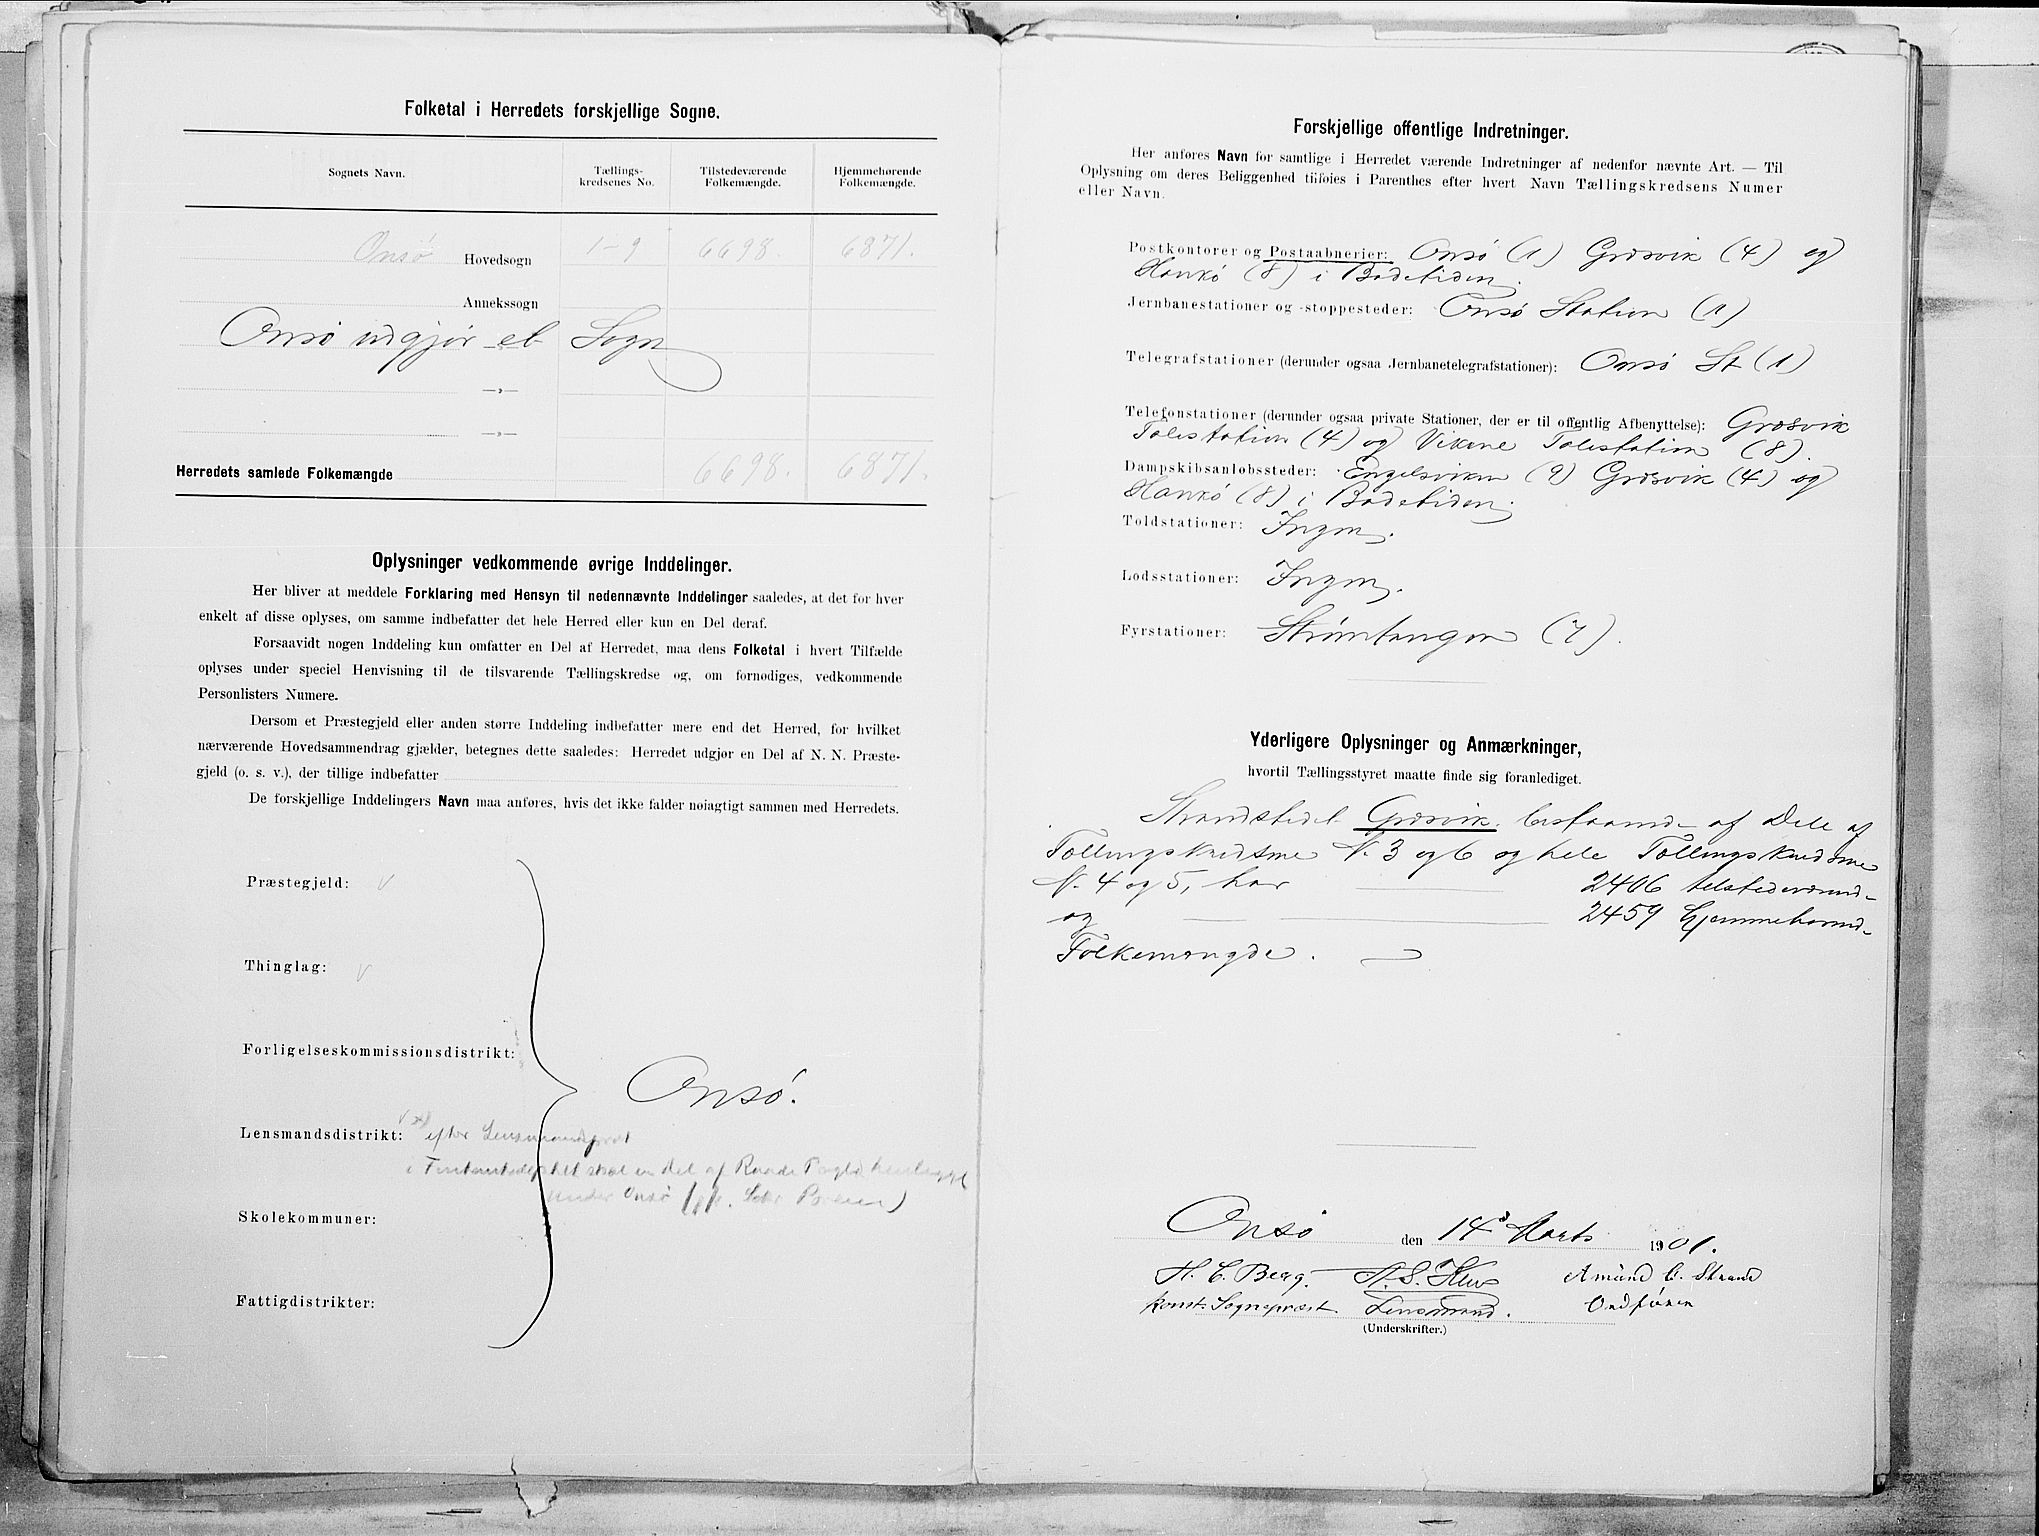 Folketal i Herredets forskjellige Sogne.
Sognets Navn.
Tællings-
kredsenes No.
Tilstedeværende
Folkemængde.
Hjemmehørende
Folkemængde.
Onsö Hovedsogn 1-9 6698. 6871.
Annekssogn
Onsø udgjør et Sogn
—„—
—„—
Herredets samlede Folkemængde 6698. 6871.
Oplysninger vedkommende øvrige Inddelinger.
Her bliver at meddele Forklaring med Hensyn til nedennævnte Inddelinger saaledes, at det for hver
enkelt af disse oplyses, om samme indbefatter det hele Herred eller kun en Del deraf.
Forsaavidt nogen Inddeling kun omfatter en Del af Herredet, maa dens Folketal i hvert Tilfælde
oplyses under speciel Henvisning til de tilsvarende Tællingskredse og, om fornødiges, vedkommende
Personlisters Numere.
Dersom et Præstegjeld eller anden større Inddeling indbefatter mere end det Herred, for hvilket
nærværende Hovedsammendrag gjælder, betegnes dette saaledes: Herredet udgjør en Del af N. N. Præste-
gjeld (o. s. v.), der tillige indbefatter
De forskjellige Inddelingers Navn maa anføres, hvis det ikke falder nøiagtigt sammen med Herredets.
Præstegjeld:
Thinglag:
Forligelseskommissionsdistrikt:
Onsö.
Lensmandsdistrikt: efter Lensmandsprot
i skal en Del af Raade henligge
under Onsø
Skolekommuner:
Fattigdistrikter:
Forskjellige offentlige Indretninger.
Her anføres Navn for samtlige i Herredet værende Indretninger af nedenfor nævnte Art. — Til
Oplysning om deres Beliggenhed tilføies i Parenthes efter hvert Navn Tællingskredsens Numer
eller Navn.
Postkontorer og Postaabnerier: Onsø (1) Græsvik (4) og
Hankø (8) i Badetiden.
Jernbanestationer og -stoppesteder: Onsø Station (1)
Telegrafstationer (derunder ogsaa Jernbanetelegrafstationer): Onsø St (1)
Telefonstationer (derunder ogsaa private Stationer, der er til offentlig Afbenyttelse): Græsvik
Talestation (4) og Vikene Talestation (8).
Dampskibsanløbssteder: Engelsviken (9) Græsvik (4) og
Hankø (8) i Badetiden.
Toldstationer: Ingen.
Lodsstationer: Ingen.
Fyrstationer: Strømtangen (7).
Yderligere Oplysninger og Anmærkninger,
hvortil Tællingsstyret maatte finde sig foranlediget.
Strandstedet Græsvik bestaaende af Dele af
Tællingskredsene N. 3 og 6 og hele Tællingskredsene
N. 4 og 5, har 2406 tilstedeværende
og 2459 hjemmehørende
Folkemængde.
Onsø den 14de Marts 1901.
H. C. Berg. Amund C. Strand
konst. Sogneprest. Lensmand. Ordfører
(Underskrifter.)